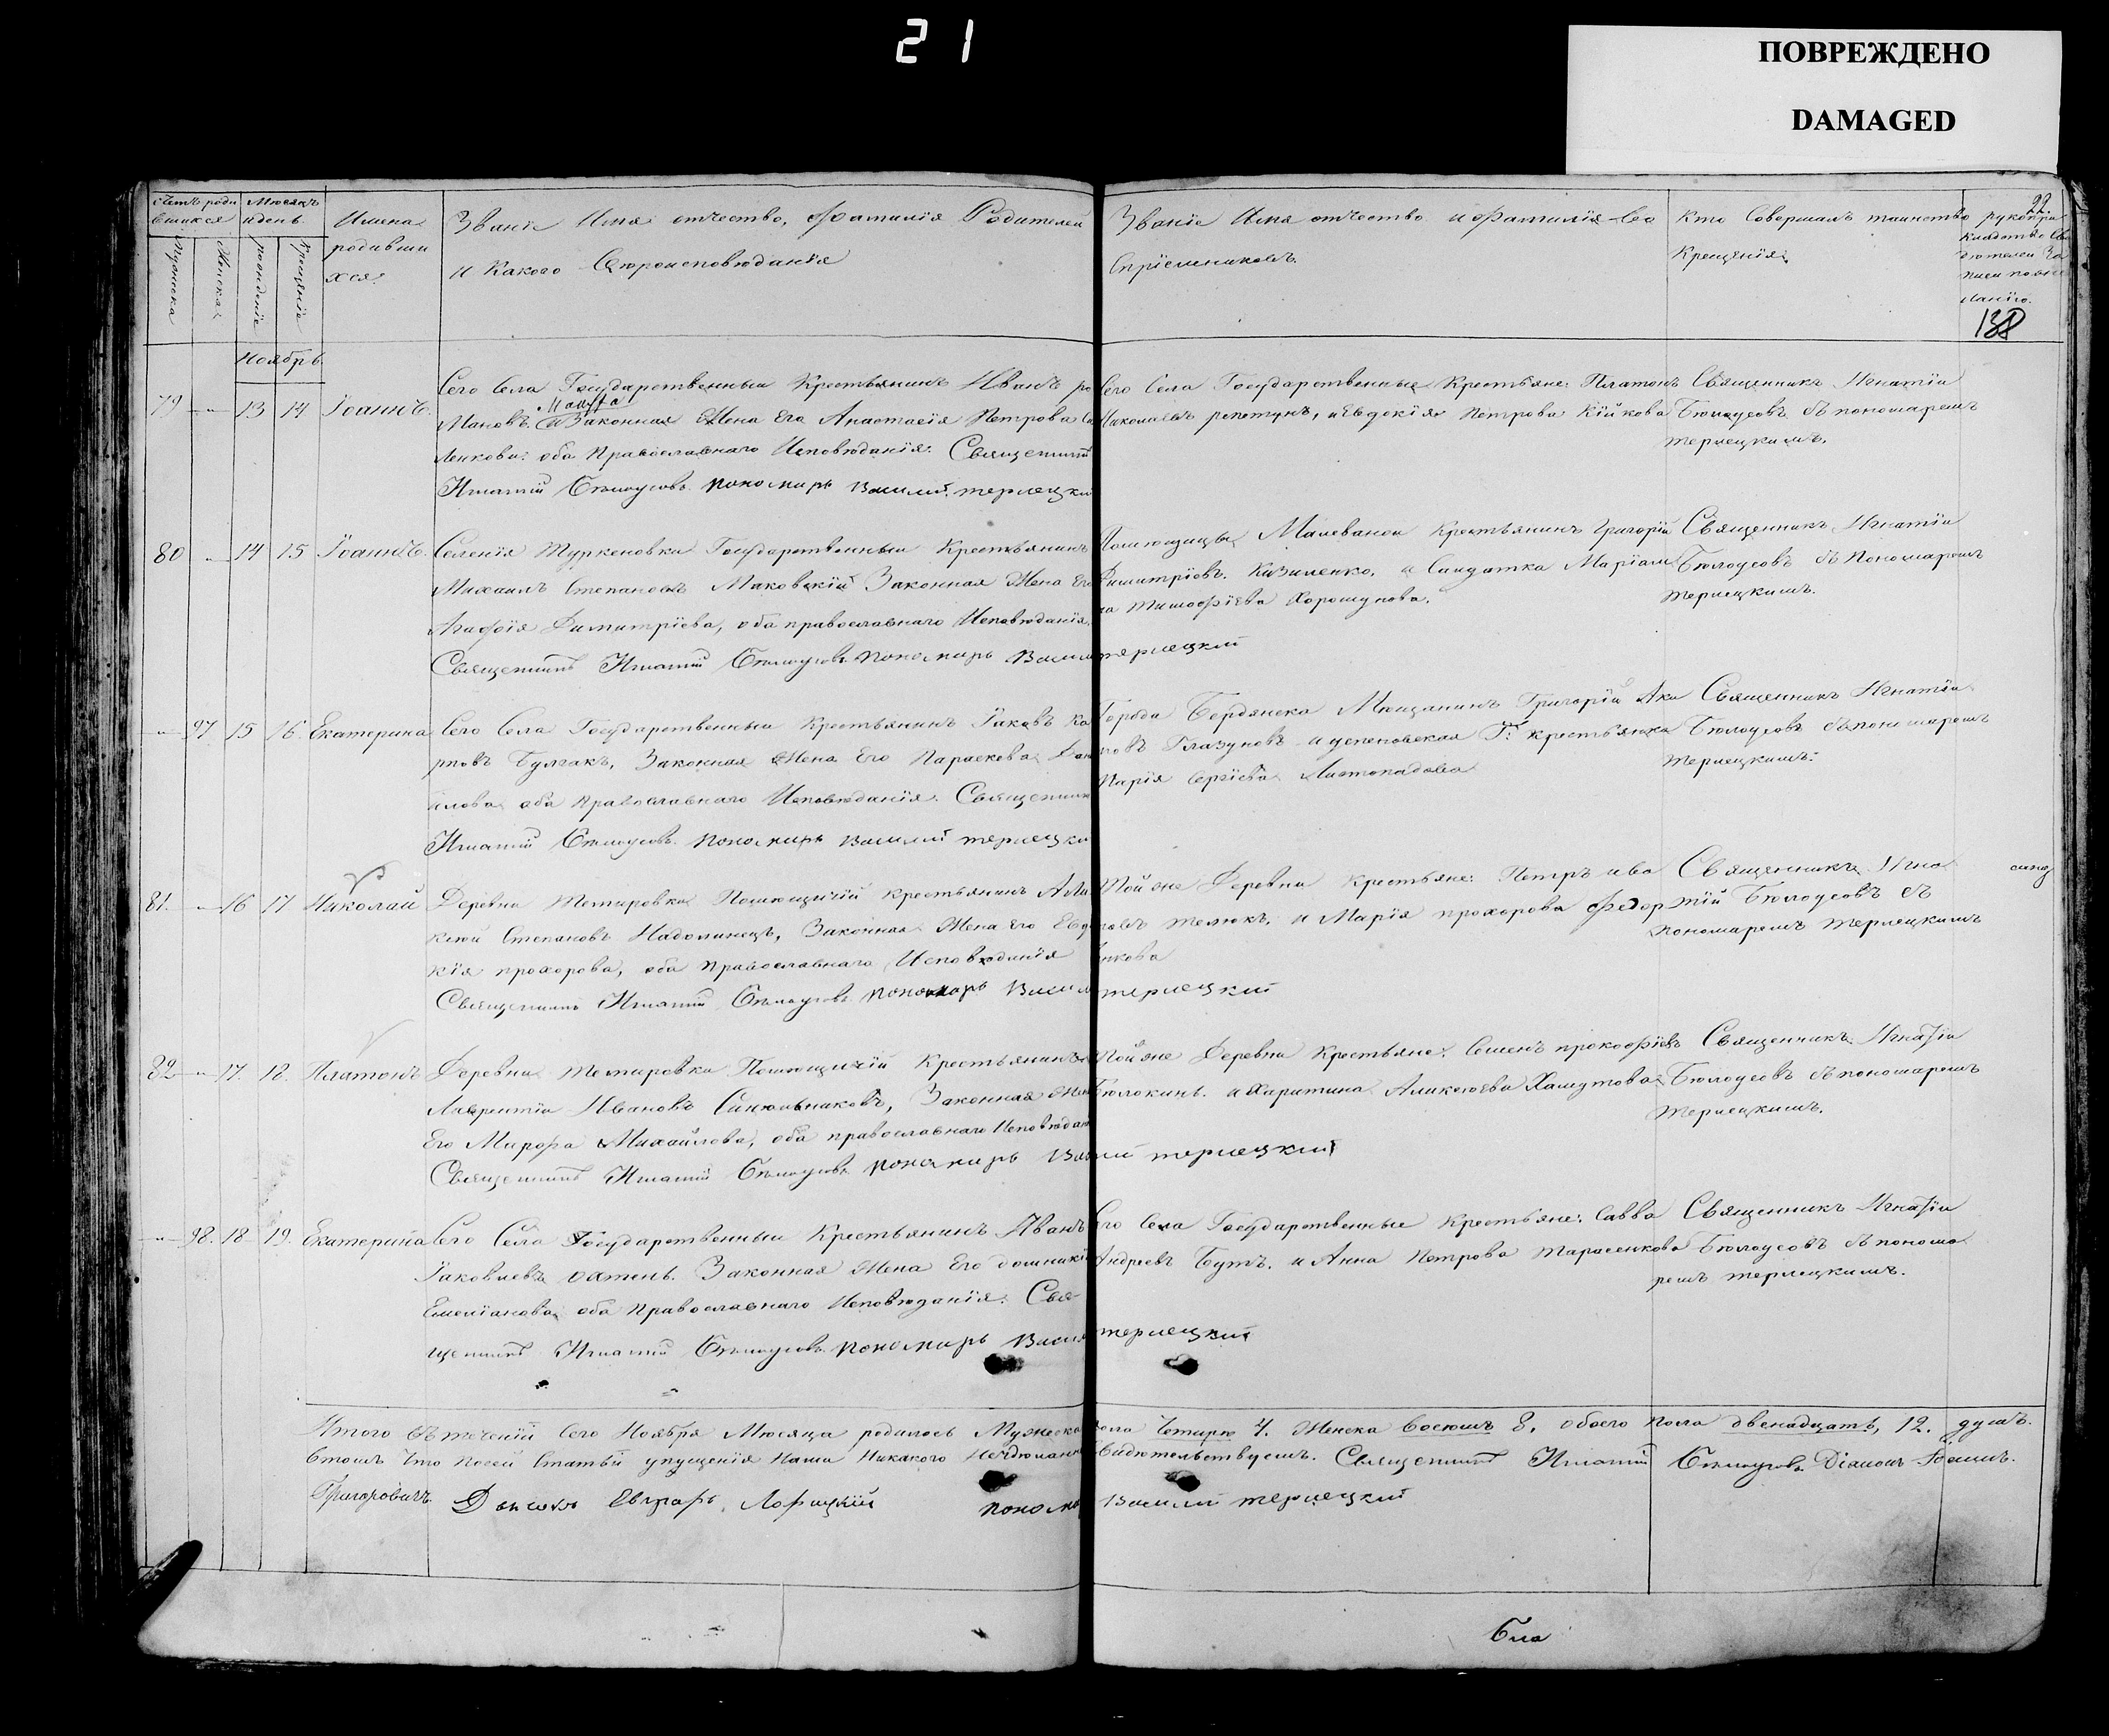 21
ПОВРЕЖДЕНО
DAMAGED
22
138
Счетъ роди
вшихся
Мѣсяцъ
и день
Мужеска
Женская
рожденіе
крещеніе
Имена
родивши
хся
Званіе Имя отчество, фамилія Родителей
и Какого Вѣроисповѣданія
Званіе Имя отчество и фамилія Во
спріемниковъ.
Кто Совершалъ таинство
Крещенія
рукопри
Ноябрь
79 -"- 13 14 Іоаннъ.
Сего Села Государственный Крестьянинъ Иванъ ро
мановъ Законная Жена Его Анастасія Петрова
ленкова оба Православнаго Исповѣданія. Священникъ
Игнатій Бѣлоусовъ пономарь Василій терлецкі
Сего Села Государственные Крестьяне: Платонъ
Николаевъ репетунъ, и Евдокія Петрова Кійкова
Священникъ Игнатіи
Бѣлоусовъ съ пономаремъ
терлецкимъ.
80 -"- 14 15 Іоаннъ.
Селенія Туркеновки Государственныи Крестьянинъ
Михаилъ Степановъ Маковскій Законная Жена Его
Агафія Димитріева, оба православнаго Исповѣданія.
Священникъ Игнатій Бѣлоусовъ пономарь Васил
терлецкій
Помѣщицы Малевanoй Крестьянинъ Григорій
Димитріевъ Кизиленко, и Салдатка Маріам
на Тимофіева Хорошунова.
Священникъ Игнатіи
Бѣлоусовъ съ Пономаремъ
терлецкимъ.
-"- 97 15 16 Екатерина
Сего Села Государственныи Крестьянинъ Іаковъ Ка
рповъ Булгакъ, Законная Жена Его Параскева Дан
илова оба Православнаго Исповѣданія. Священник
Игнатій Бѣлоусовъ. пономарь Василій терлецкі
Города Бердянска Мѣщанинъ Григорій Аки
мовъ Глазуновъ и успеновская Г: крестьянка
Марія Сергіева Листопадова
Священникъ Игнатіи
Бѣлоусовъ съ пономаремъ
терлецкимъ:
81. -"- 16 17 Николай
Деревни Темировки Помѣщичій крестьянинъ Але
ксѣй Степановъ Надолинецъ, Законная Жена Его Евдо
кія прохорова, оба православнаго Исповѣданія
Священникъ Игнатій Бѣлоусовъ пономарь Васил
терлецкій
Той же Деревни крестьяне: Петръ ива
новъ телюкъ, и Марія прохорова федор
чнкова
Священникъ Игна
тій Бѣлоусовъ съ
пономаремъ терлецкимъ
82 -"- 17. 18. Платонъ
Деревни Темировки Помѣщичій Крестьянинъ
Лаврентіи Ивановъ Синельниковъ, Законная Жена
Его Мирофа Михайлова, оба православнаго Исповѣдан
Священникъ Игнатій Бѣлоусовъ пономарь Ва
илій терлецкій
Той же Деревни Крестьяне: Семенъ прокофіевъ
Бѣлокинь. и Харитина Алексѣева Хамутова
Священникъ Игнатіи
Бѣлоусовъ съ пономаремъ
терлецкимъ.
-"- 98. 18 19. Екатерина
Сего Села Государственныи Крестьянинъ Иванъ
Іаковлевъ Законная Жена Его домникія
Емеліанова оба православнаго Исповѣданія. Свя
щенникъ Игнатій Бѣлоусовъ пономарь Васил
терлецкій
Сего Села Государственные Крестьяне: Савва
Андреевъ Бутъ. и Анна Петрова тарасенкова
Священникъ Игнатіи
Бѣлоусовъ съ понома
ремъ терлецкимъ.
Итого въ теченій Сего Ноября Мѣсяца родилось Мужеска пола Четыре 4. Женска восемь 8. обоего пола двенадцать, 12. душъ.
Втомъ Что посей Статьи упущенія Нами Никакого Несдѣлано Свидѣтельствуемъ. Священникъ Игнатій Бѣлоусовъ. Діаконъ Іоаннъ
Григоровичъ. Дьячокъ пономарь Василій терлецкій